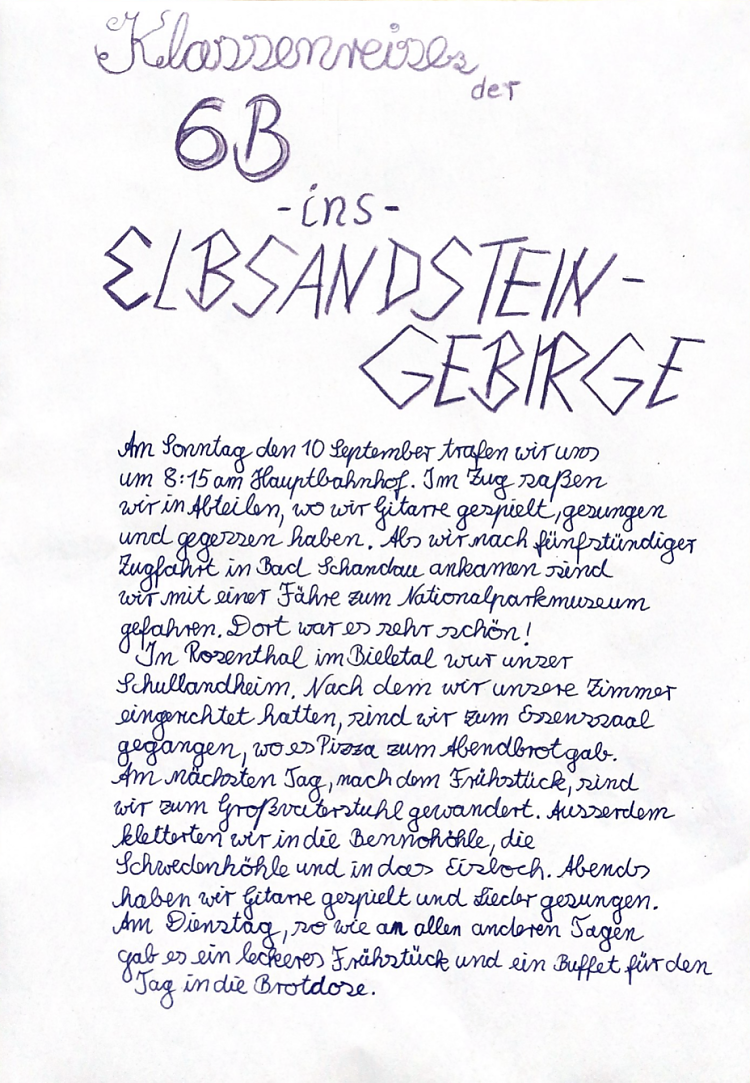 Klassenreise
der
6B
-ins-
ELBSANDSTEIN-
GEBIRGE
Am Sonntag den 10 September trafen wir uns
um 8:15 am Hauptbahnhof. Im Zug saßen
wir in Abteilen, wo wir Gitarre gespielt, gesungen
und gegessen haben. Als wir nach fünfstündiger
Zugfahrt in Bad Schandau ankamen sind
wir mit einer Fähre zum Nationalparkmuseum
gefahren. Dort war es sehr schön!
In Rosenthal im Bieletal war unser
Schullandheim. Nach dem wir unsere Zimmer
eingerichtet hatten, sind wir zum Essenssaal
gegangen, wo es Pizza zum Abendbrot gab.
Am nächsten Tag, nach dem Frühstück, sind
wir zum Großvaterstuhl gewandert. Ausserdem
kletterten wir in die Bennohöhle, die
Schwedenhöhle und in das Eisloch. Abends
haben wir Gitarre gespielt und Lieder gesungen.
Am Dienstag, so wie an allen anderen Tagen
gab es ein leckeres Frühstück und ein Buffet für den
Tag in die Brotdose.